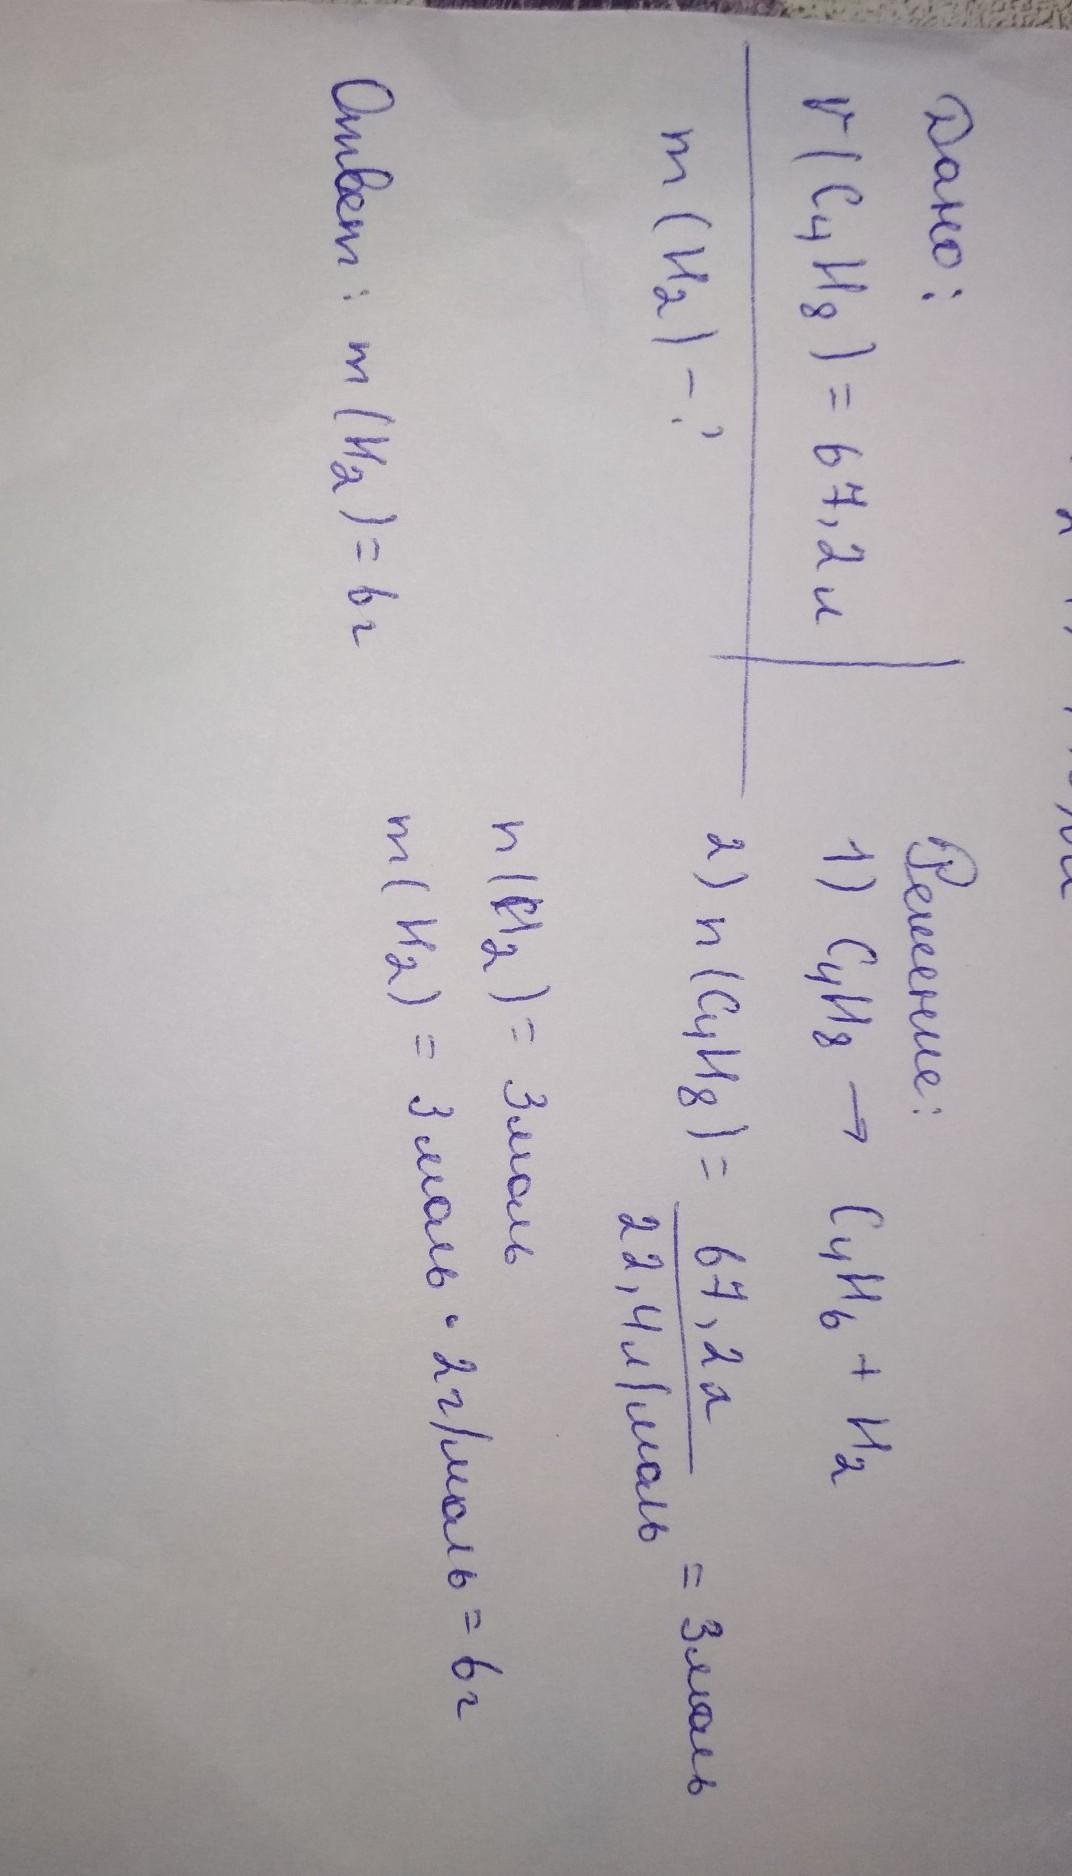 Дано:
V(C4H8) = 67,2л
m(H2) - ?
Решение:
1) C4H8 → C4H6 + H2
2) n(C4H8) = 67,2л / 22,4л/моль = 3моль
n(H2) = 3моль
m(H2) = 3моль · 2г/моль = 6г
Ответ: m(H2) = 6г